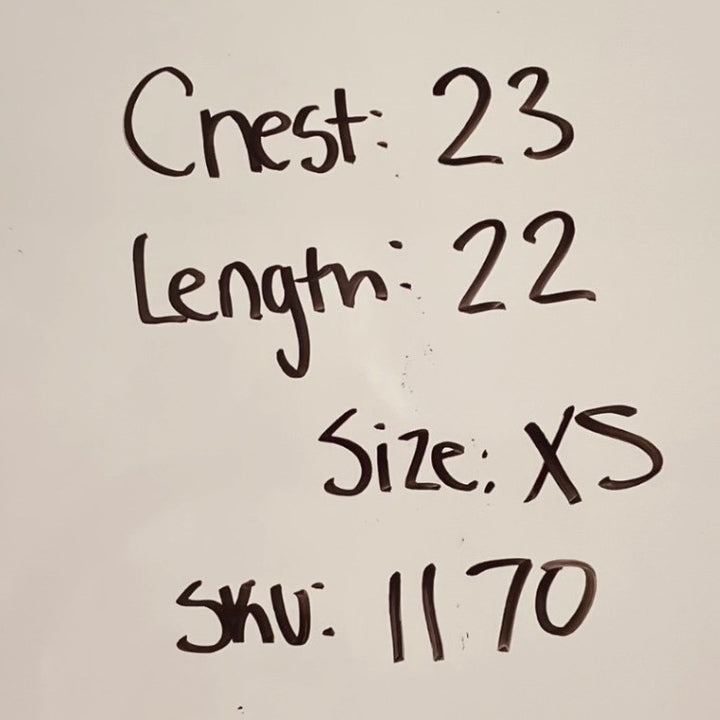 Chest: 23
Length: 22
Size: XS
SKU: 1170